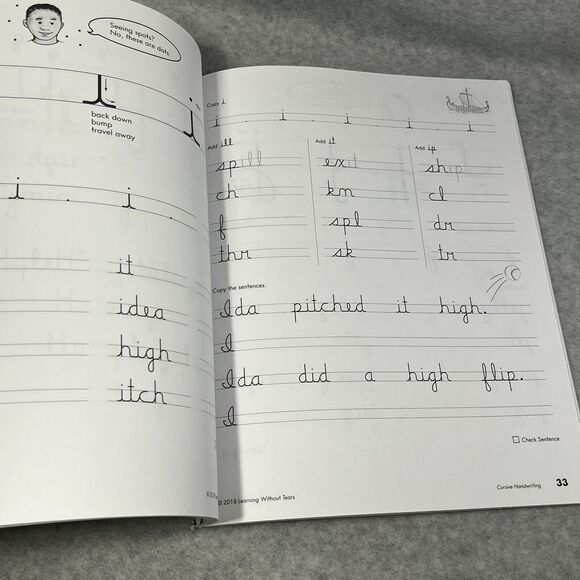 Seeing spots?
No, these are dots.
back down
bump
travel away
i
i i
it
idea
high
itch
Copy i
i . i . i . i . i
Add ill Add it Add ip
spill exit ship
ch kn cl
f spl dr
thr sk tr
Copy the sentences.
Ida pitched it high.
I
Ida did a high flip.
I
Check Sentence
© 2018 Learning Without Tears
Cursive Handwriting 33